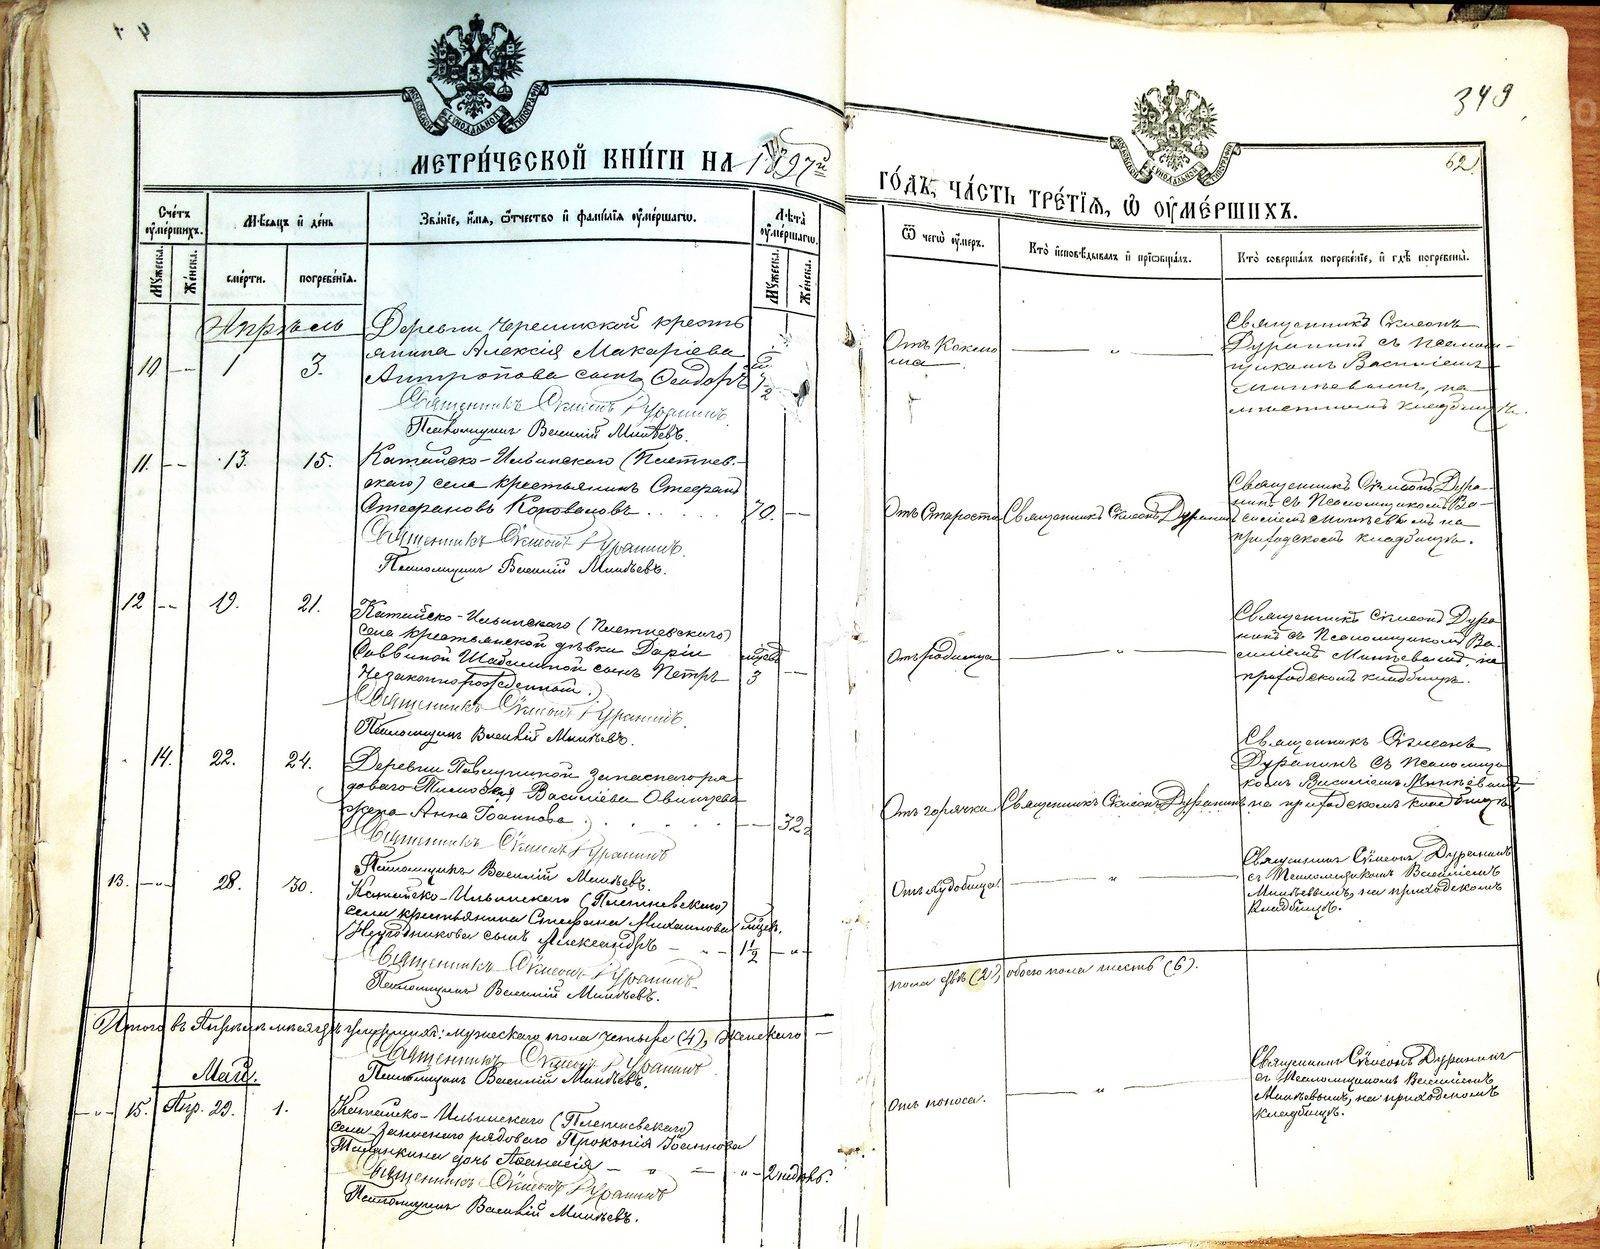 349
62
МЕТРИ́ЧЕСКОЙ КНИ́ГИ НА 1897й
ГО́ДЪ, ЧА́СТЬ ТРЕ́ТІѦ, Ѡ ОУ҆МЕ́РШИХЪ.
Сче́тъ оу҆ме́ршихъ.
Му́жеска.
Же́нска.
Мѣ́сѧцъ и҆ де́нь
сме́рти.
погребе́нїѧ.
Зва́нїе, и҆́мѧ, ѻ҆́тчество и҆ фамилїѧ оу҆ме́ршагѡ.
Лѣ́та оу҆ме́ршагѡ.
Му́жеска.
Же́нска.
Ѿ чегѡ̀ оу҆́меръ.
Кто̀ и҆сповѣ́дывалъ и҆ прїѡбща́лъ.
Кто̀ соверша́лъ погребе́нїе, и҆ гдѣ̀ погребены̀.
Апрѣль
10 — 1 3.
Деревни
крестьянина Алексія Макаріева
Антропова сынъ Ѳеодоръ
Священникъ Сѵмеонъ Дуранинъ.
Псаломщикъ Василій Минѣевъ.
Священникъ Сѵмеонъ
Дуранинъ съ Псалом-
щикомъ Василіемъ
Минѣевымъ, на
кладбищѣ.
11. — 13. 15.
Катайско-Ильинскаго (Плетнев-
скаго) села крестьянинъ Стефанъ
Стефановъ Коноваловъ . . . . . 70. —
Священникъ Сѵмеонъ Дуранинъ.
Псаломщикъ Василій Минѣевъ.
Отъ Старости
Священникъ Сѵмеонъ Дуранинъ
Священникъ Сѵмеонъ Дура-
нинъ съ Псаломщикомъ Ва-
силіемъ Минѣевымъ на
приходскомъ кладбищѣ.
12 — 19. 21.
Катайско-Ильинскаго (Плетневскаго)
села крестьянской дѣвки Даріи
Саввиной сынъ Петръ
Незаконнорожденный. 3 —
Священникъ Сѵмеонъ Дуранинъ.
Псаломщикъ Василій Минѣевъ.
Отъ родимца
Священникъ Сѵмеонъ Дура
нинъ съ Псаломщикомъ Ва-
силіемъ Минѣевымъ, на
приходскомъ кладбищѣ.
14. 22. 24.
Деревни запаснаго ря
доваго Тимоѳея Василіева Овинцева
жена Анна Іоаннова . . . . . — 32.
Священникъ Сѵмеонъ Дуранинъ
Псаломщикъ Василій Минѣевъ.
Отъ горячки
Священникъ Сѵмеонъ Дуранинъ
Священникъ Сѵмеонъ
Дуранинъ съ Псаломщи
комъ Василіемъ Минѣевымъ,
на приходскомъ кладбищѣ
13. — 28. 30.
Катайско-Ильинскаго (Плетневскаго)
села крестьянина Стефана Михаилова
сынъ Александръ 1 1/2
Священникъ Сѵмеонъ Дуранинъ.
Псаломщикъ Василій Минѣевъ.
Отъ худобища.
Священникъ Сѵмеонъ Дуранинъ
съ Псаломщикомъ Василіемъ
Минѣевымъ, на приходскомъ
кладбищѣ.
Итого въ Апрѣлѣ мѣсяцѣ умершихъ: мужескаго пола четыре (4), женскаго —
пола двѣ (2), обоего пола шесть (6).
Священникъ Сѵмеонъ Дуранинъ
Псаломщикъ Василій Минѣевъ.
Май.
15. Апр. 29. 1.
Катайско-Ильинскаго (Плетневскаго)
села запаснаго рядоваго Прокопія Іоаннова
дочь Аѳанасія 2 недѣль.
Священникъ Сѵмеонъ Дуранинъ
Псаломщикъ Василій Минѣевъ.
Отъ поноса.
Священникъ Сѵмеонъ Дуранинъ
съ Псаломщикомъ Василіемъ
Минѣевымъ, на приходскомъ
кладбищѣ.